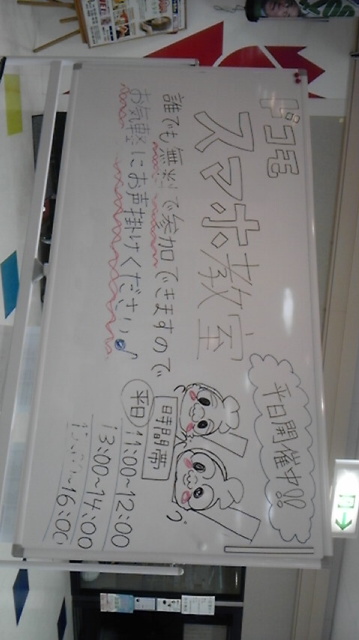 ドコモ
スマホ教室
平日開催中!!
誰でも無料で参加できますので
お気軽にお声掛けください♪
時間帯
平日
11:00~12:00
13:00~14:00
~16:00